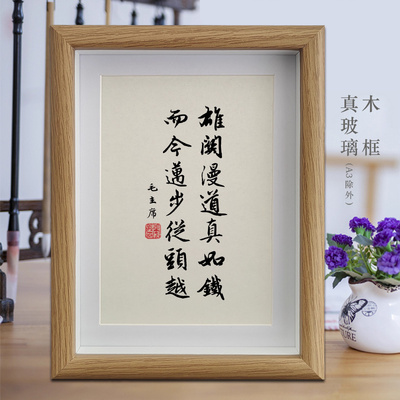 雄關漫道真如鐵
而今邁步從頭越
毛主席
木框
真玻璃
(A3除外)